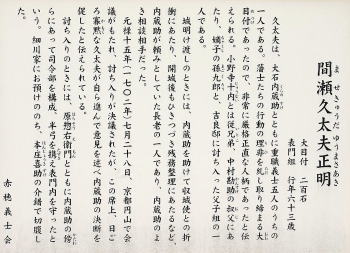 間瀬久太夫正明
ませきゅうだゆうまさあき
大目付 二百石
表門組 行年六十三歳
久太夫は、大石内蔵助とともに重職義士五人のうちの
一人である。藩士たちの行動の理非を糺し取り締まる大
目付であったので、非常に厳格正直な人柄であったと伝
えられる。小野寺十内とは従兄弟、中村勘助の叔父にあ
たり、嫡子の孫九郎と、吉良邸に討ち入った父子組の一
人である。
城明け渡しのときには、内蔵助を助けて収城使との折
衝にあたり、開城後もひきつづき残務整理にあたるなど、
内蔵助が頼みとしていた長老の一人であり、内蔵助のよ
き相談相手だった。
元禄十五年(一七〇二年)七月二十八日、京都円山で会
議がもたれ、討ち入りが決議されたが、この席上、日ご
ろ寡黙な久太夫が自ら進んで意見を述べ内蔵助の決断を
促したと伝えられている。
討ち入りのときには、原惣右衛門とともに内蔵助の傍
らにあって司令部を構成、半弓を携え表門内を守ったと
いう。細川家にお預けののち、本庄喜助の介錯で切腹し
た。
赤穂義士会